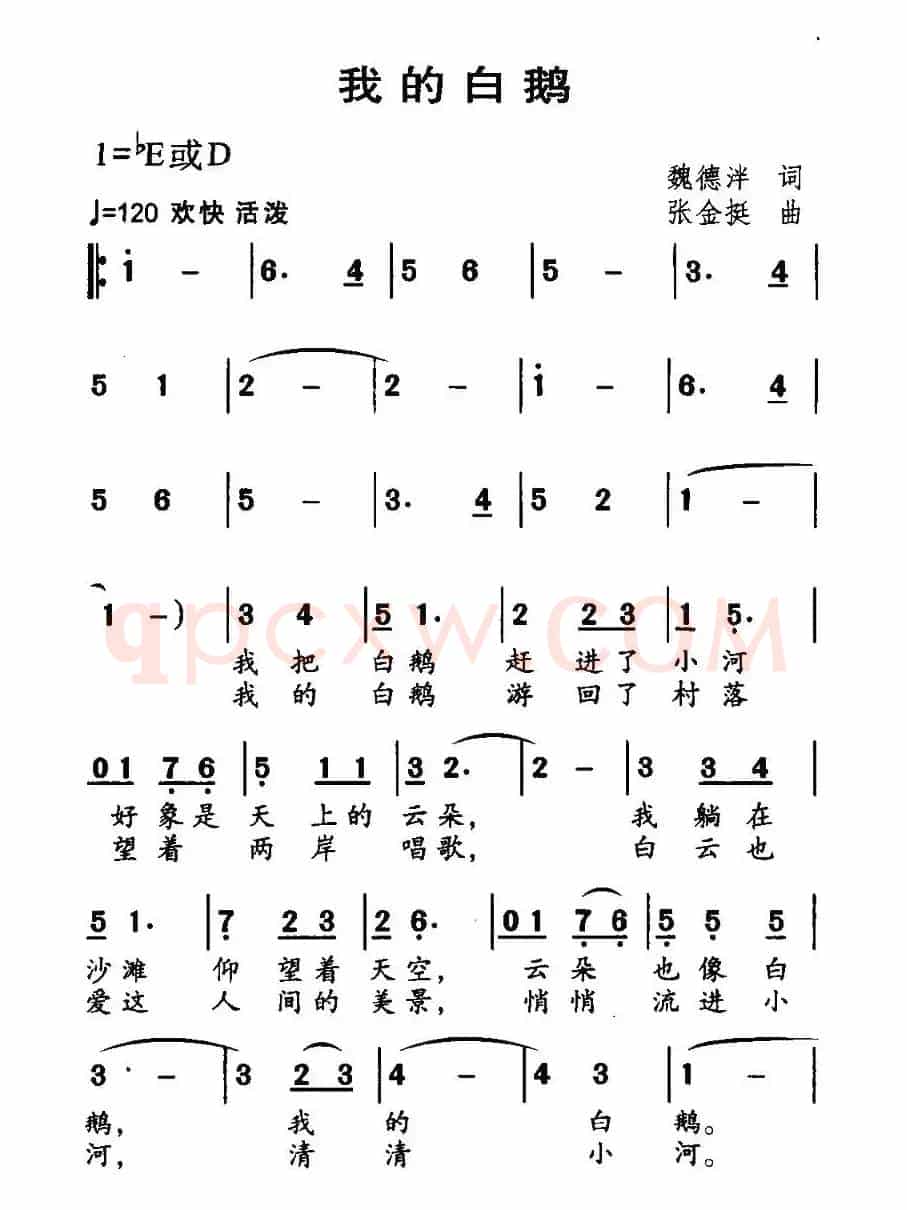 我的白鹅
1=♭E或D
魏德泮 词
♩=120 欢快 活泼
张金挺 曲
‖: i - | 6. 4 | 5 6 | 5 - | 3. 4 |
5 1 | 2 - | 2 - | i - | 6. 4 |
5 6 | 5 - | 3. 4 | 5 2 | 1 - |
1 -) | 3 4 | 5 1. | 2 2 3 | 1 5. |
qpcxw.COM
我 把 白 鹅 赶 进 了 小 河
我 的 白 鹅 游 回 了 村 落
0 1 7 6 | 5 1 1 | 3 2. | 2 - | 3 3 4 |
好 象 是 天 上 的 云 朵, 我 躺 在
望 着 两 岸 唱 歌, 白 云 也
5 1. | 7 2 3 | 2 6. | 0 1 7 6 | 5 5 5 |
沙 滩 仰 望 着 天 空, 云 朵 也 像 白
爱 这 人 间 的 美 景, 悄 悄 流 进 小
3 · - | 3 2 3 | 4 - | 4 3 | 1 - |
鹅, 我 的 白 鹅。
河, 清 清 小 河。